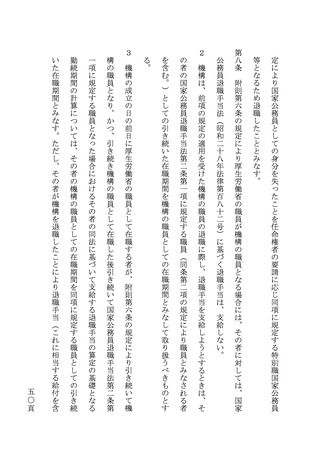 定により国家公務員としての身分を失ったことを任命権者の要請に応じ同項に規定する特別職国家公務員
等となるため退職したこととみなす。
第八条　附則第六条の規定により厚生労働省の職員が機構の職員となる場合には、その者に対しては、国家
公務員退職手当法（昭和二十八年法律第百八十二号）に基づく退職手当は、支給しない。
２　機構は、前項の規定の適用を受けた機構の職員の退職に際し、退職手当を支給しようとするときは、そ
の者の国家公務員退職手当法第二条第一項に規定する職員（同条第二項の規定により職員とみなされる者
を含む。）としての引き続いた在職期間を機構の職員としての在職期間とみなして取り扱うべきものとす
る。
３　機構の成立の日の前日に厚生労働省の職員として在職する者が、附則第六条の規定により引き続いて機
構の職員となり、かつ、引き続き機構の職員として在職した後引き続いて国家公務員退職手当法第二条第
一項に規定する職員となった場合におけるその者の同法に基づいて支給する退職手当の算定の基礎となる
勤続期間の計算については、その者の機構の職員としての在職期間を同項に規定する職員としての引き続
いた在職期間とみなす。ただし、その者が機構を退職したことにより退職手当（これに相当する給付を含
五〇頁